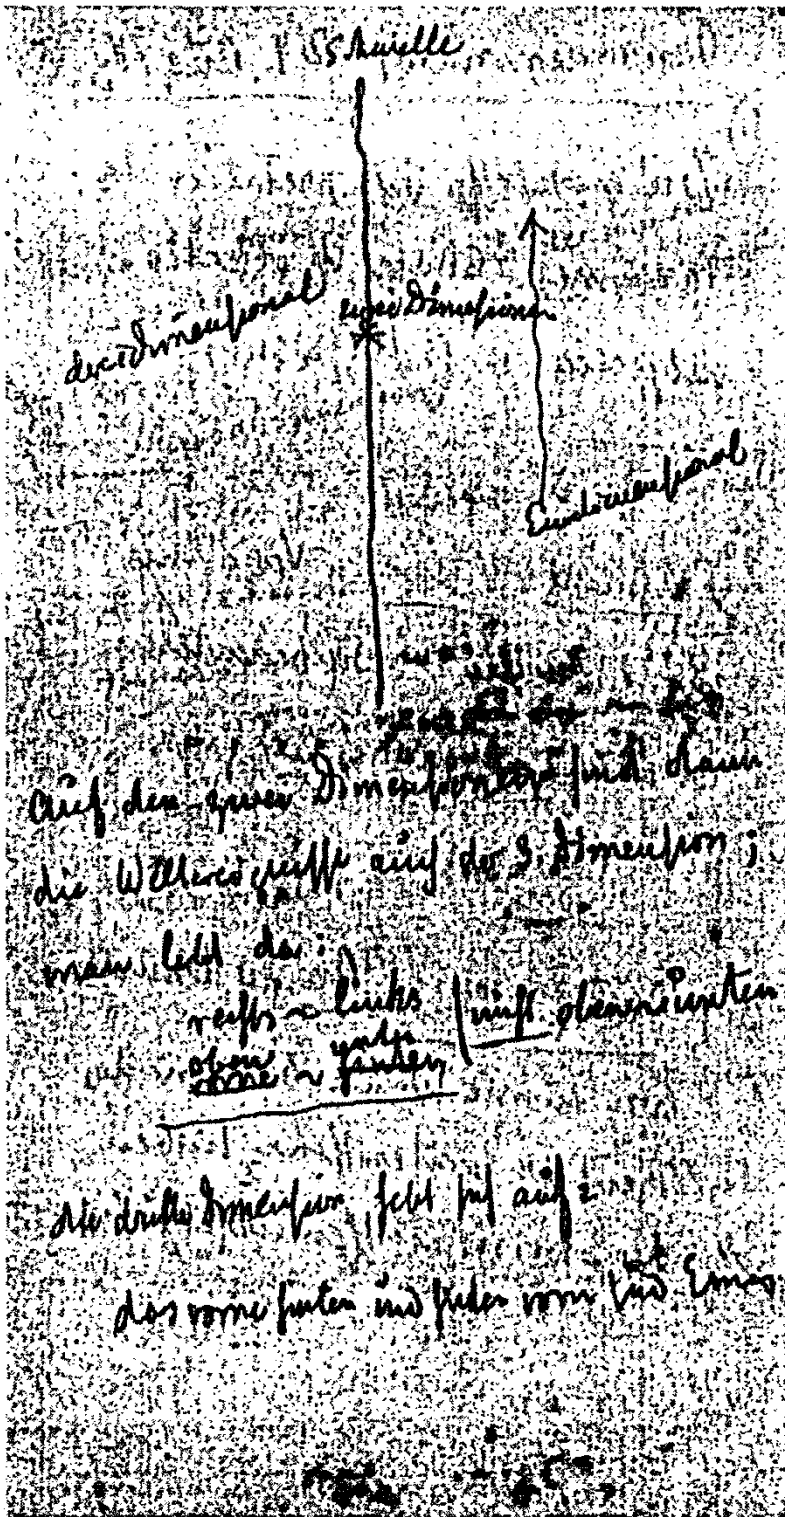 Schwelle
dreidimensional
zwei Dimensionen
Eindimensional
Auf den zwei Dimensionen sind dann
die auf der 3. Dimension;
man lebt da:
rechts ~ links | nicht oben ~ unten
oben ~ unten
~ hinten
die dritte Dimension hebt sich auf:
das vorne hinten und hinten vorn sind Eines